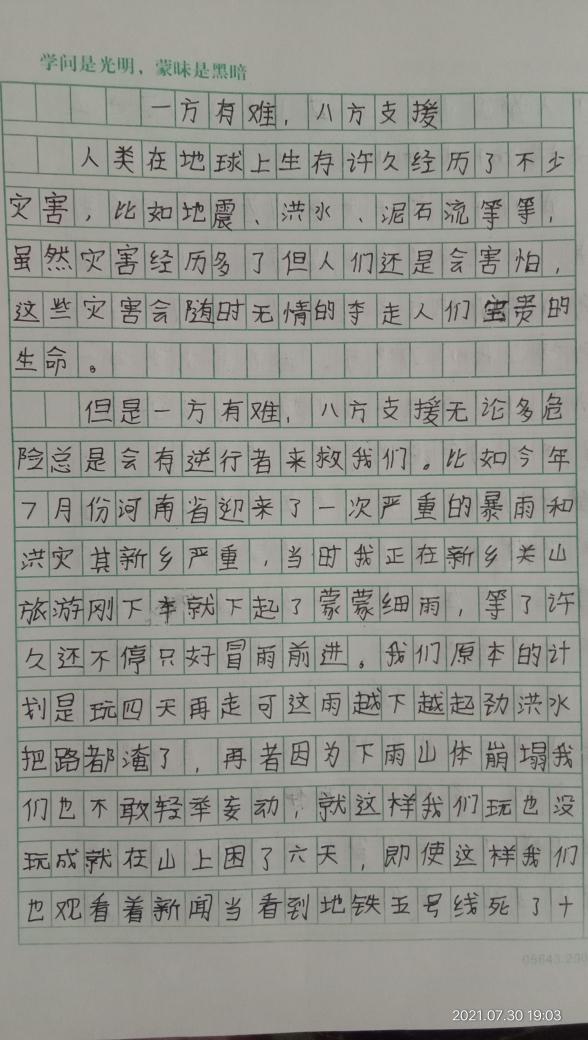 学问是光明，蒙昧是黑暗
一方有难，八方支援
人类在地球上生存许久经历了不少
灾害，比如地震、洪水、泥石流等等，
虽然灾害经历多了但人们还是会害怕，
这些灾害会随时无情的夺走人们宝贵的
生命。
但是一方有难，八方支援无论多危
险总是会有逆行者来救我们。比如今年
7月份河南省迎来了一次严重的暴雨和
洪灾其新乡严重，当时我正在新乡关山
旅游刚下车就下起了蒙蒙细雨，等了许
久还不停只好冒雨前进。我们原本的计
划是玩四天再走可这雨越下越起劲洪水
把路都淹了，再者因为下雨山体崩塌我
们也不敢轻举妄动，就这样我们玩也没
玩成就在山上困了六天，即使这样我们
也观看着新闻当看到地铁五号线死了十
05643.290
2021.07.30 19:03